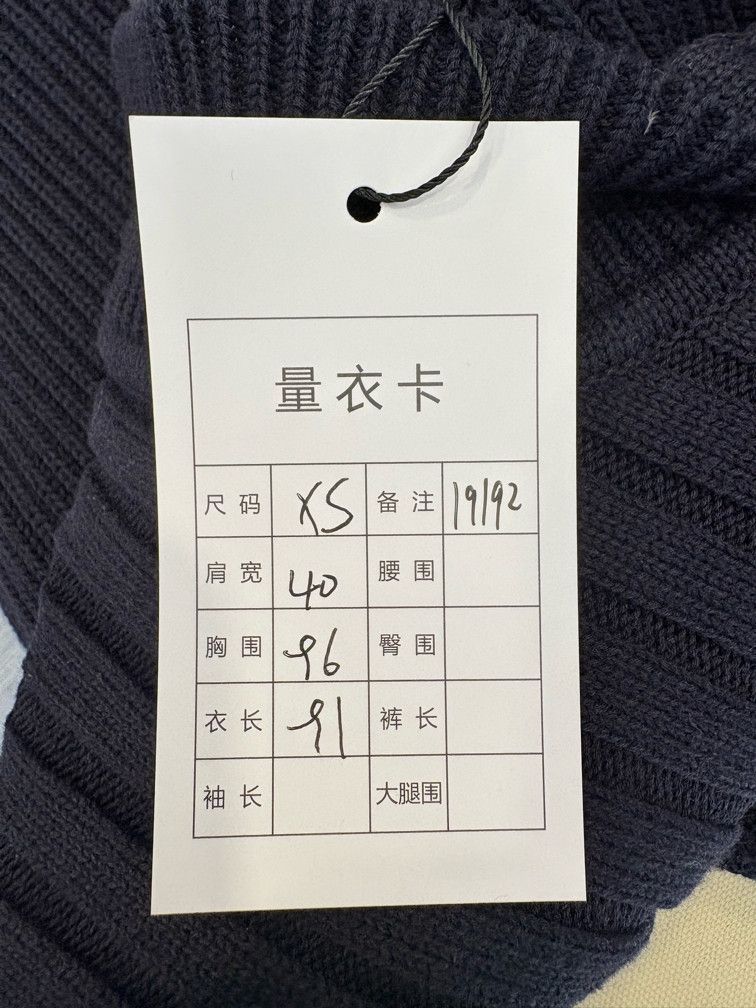 量衣卡
尺码 XS 备注 19192
肩宽 40 腰围
胸围 96 臀围
衣长 91 裤长
袖长 大腿围